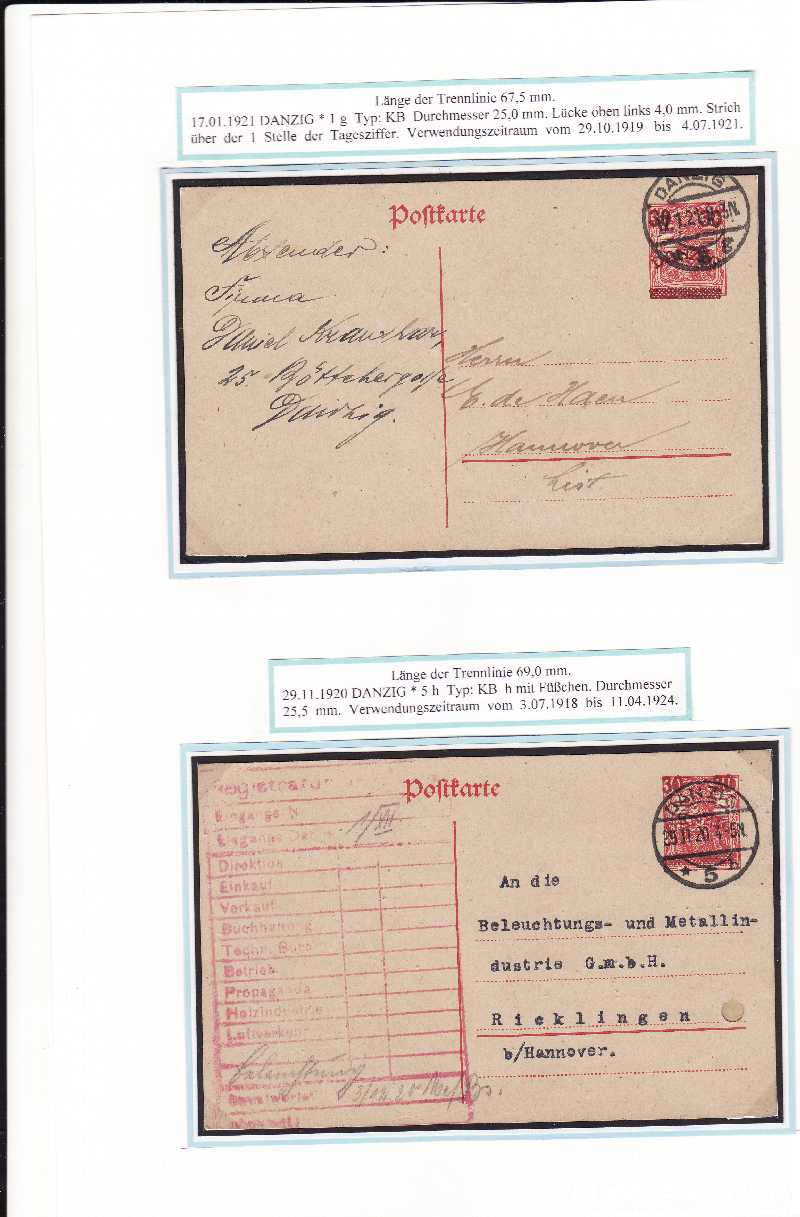 Länge der Trennlinie 67,5 mm.
17.01.1921 DANZIG * 1 g Typ: KB Durchmesser 25,0 mm. Lücke oben links 4,0 mm. Strich
über der 1 Stelle der Tagesziffer. Verwendungszeitraum vom 29.10.1919 bis 4.07.1921.
Postkarte
DANZIG
Absender:
Firma
25 Böttchergasse
Danzig.
Herrn
E. de Haen
Hannover
List
Länge der Trennlinie 69,0 mm.
29.11.1920 DANZIG * 5 h Typ: KB h mit Füßchen. Durchmesser
25,5 mm. Verwendungszeitraum vom 3.07.1918 bis 11.04.1924.
Postkarte
30
DANZIG
29.11.20
* 5 h
Registratur
Eingangs N
Eingangs Datum
1/XII
Direktion
Einkauf
Verkauf
Buchhaltung
Techn. Büro
Betrieb
Propaganda
Holzindustrie
Luftverkehr
Beleuchtung
An die
Beleuchtungs- und Metallin-
dustrie G.m.b.H.
Ricklingen
b/Hannover.